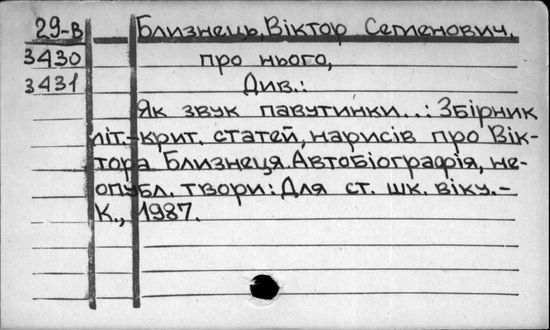 29-В Близнець, Віктор Семенович,
3430 про нього,
3431 Див.:
Як звук павутинки..: Збірник
літ.-крит. статей, нарисів про Вік-
тора Близнеця. Автобіографія, не-
опубл. твори: Для ст. шк. віку.-
К., 1987.